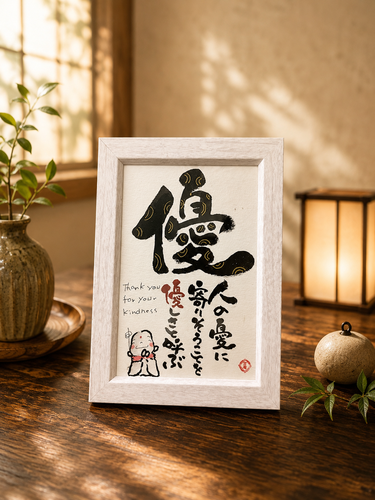 優
人の憂に
寄りそうことを
優しさと呼ぶ
Thank you
for your
kindness